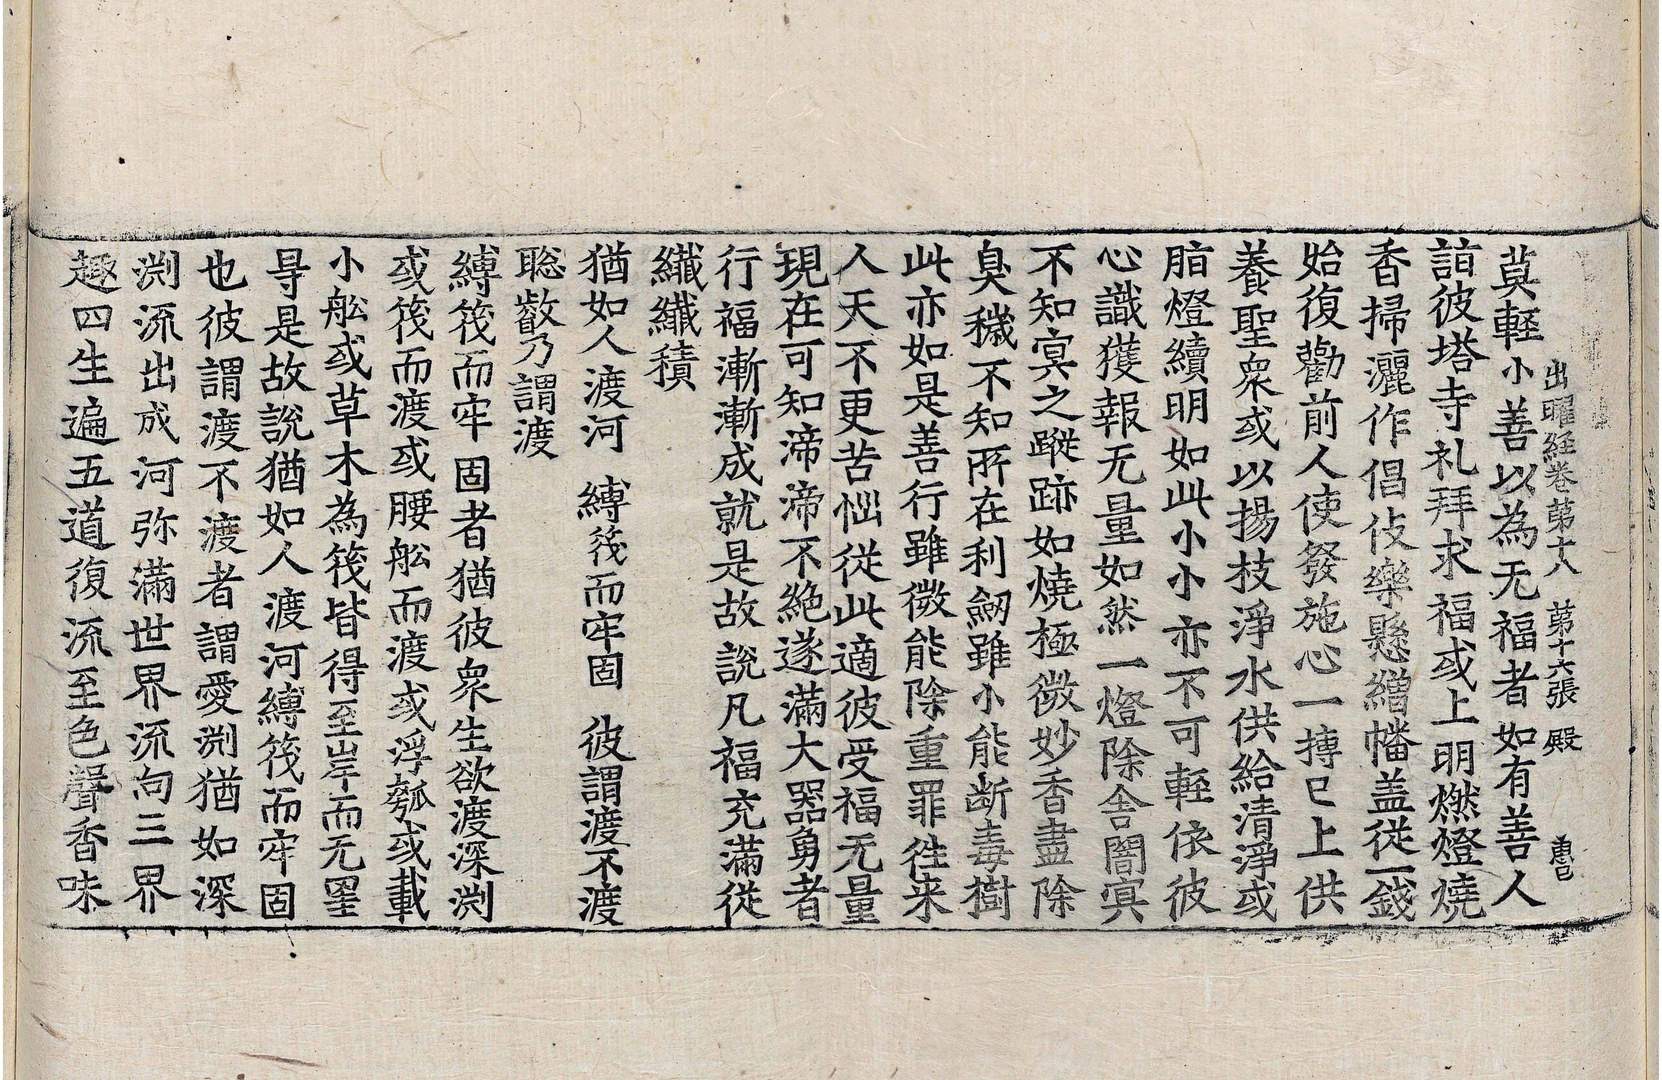 出曜経卷第十八 第十六張 殿 惠巳
莫軽小善以為无福者如有善人
詣彼塔寺礼拜求福或上明燃燈燒
香掃灑作倡伎樂懸繒幡盖從一錢
始復勸前人使發施心一摶已上供
養聖衆或以揚枝淨水供給清淨或
脂燈續明如此小小亦不可輕依彼
心識獲報无量如然一燈除舍闇冥
不知冥之蹤跡如燒極微妙香盡除
臭穢不知所在利劒雖小能断毒樹
此亦如是善行雖微能除重罪往来
人天不更苦惱從此適彼受福无量
現在可知渧渧不絶遂滿大器勇者
行福漸漸成就是故說凡福充滿從
纖纖積
猶如人渡河 縛筏而牢固 彼謂渡不渡
聡叡乃謂渡
縛筏而牢固者猶彼衆生欲渡深渕
或筏而渡或腰舩而渡或浮瓠或載
小舩或草木為筏皆得至岸而无罣
㝵是故說猶如人渡河縛筏而牢固
也彼謂渡不渡者謂愛渕猶如深
渕流出成河弥滿世界流向三界
趣四生遍五道復流至色聲香味